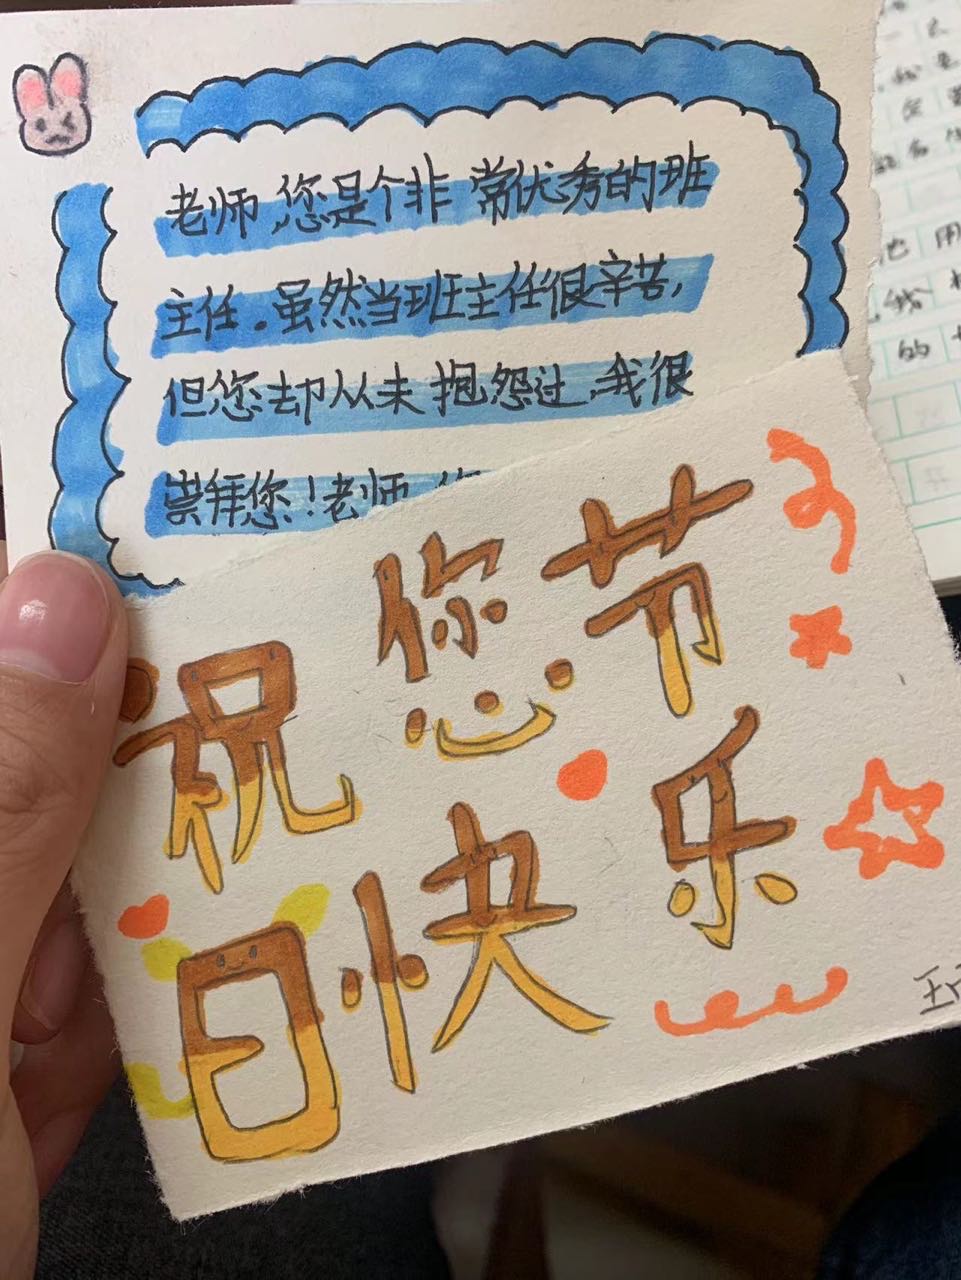 老师,您是个非常优秀的班
主任。虽然当班主任很辛苦,
但您却从未抱怨过.我很
崇拜您!老师
祝您节
日快乐
的